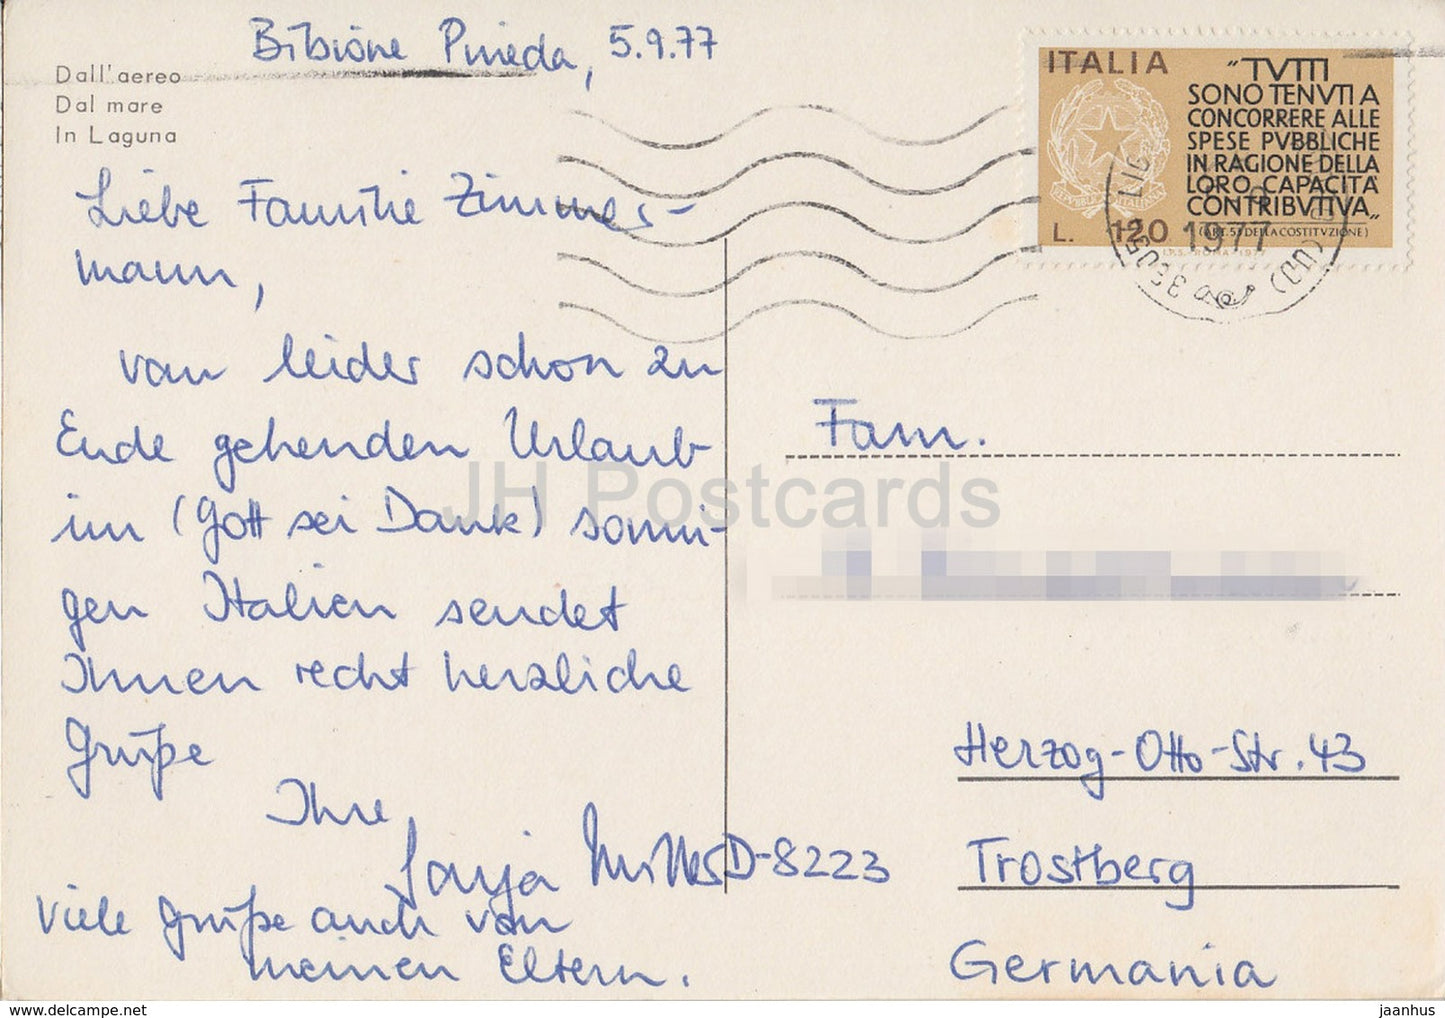 Bibione Pineda, 5.9.77
Dall'aereo
Dal mare
In Laguna
Liebe Familie Zimmer-
mann,
vom leider schon zu
Ende gehenden Urlaub
im (Gott sei Dank) sonni-
gen Italien sendet
Ihnen recht herzliche
Grüße
Ihre
Sonja
Viele Grüße auch von
meinen Eltern.
ITALIA
"TVTTI
SONO TENVTI A
CONCORRERE ALLE
SPESE PVBBLICHE
IN RAGIONE DELLA
LORO CAPACITÀ
CONTRIBVTIVA„
(ART. 53 DELLA COSTITVZIONE)
L. 120
I.P.S. - ROMA - 1977
1977
(UD)
Fam.
Herzog-Otto-Str. 43
D-8223 Trostberg
Germania
JH Postcards
www.delcampe.net
jaanhus